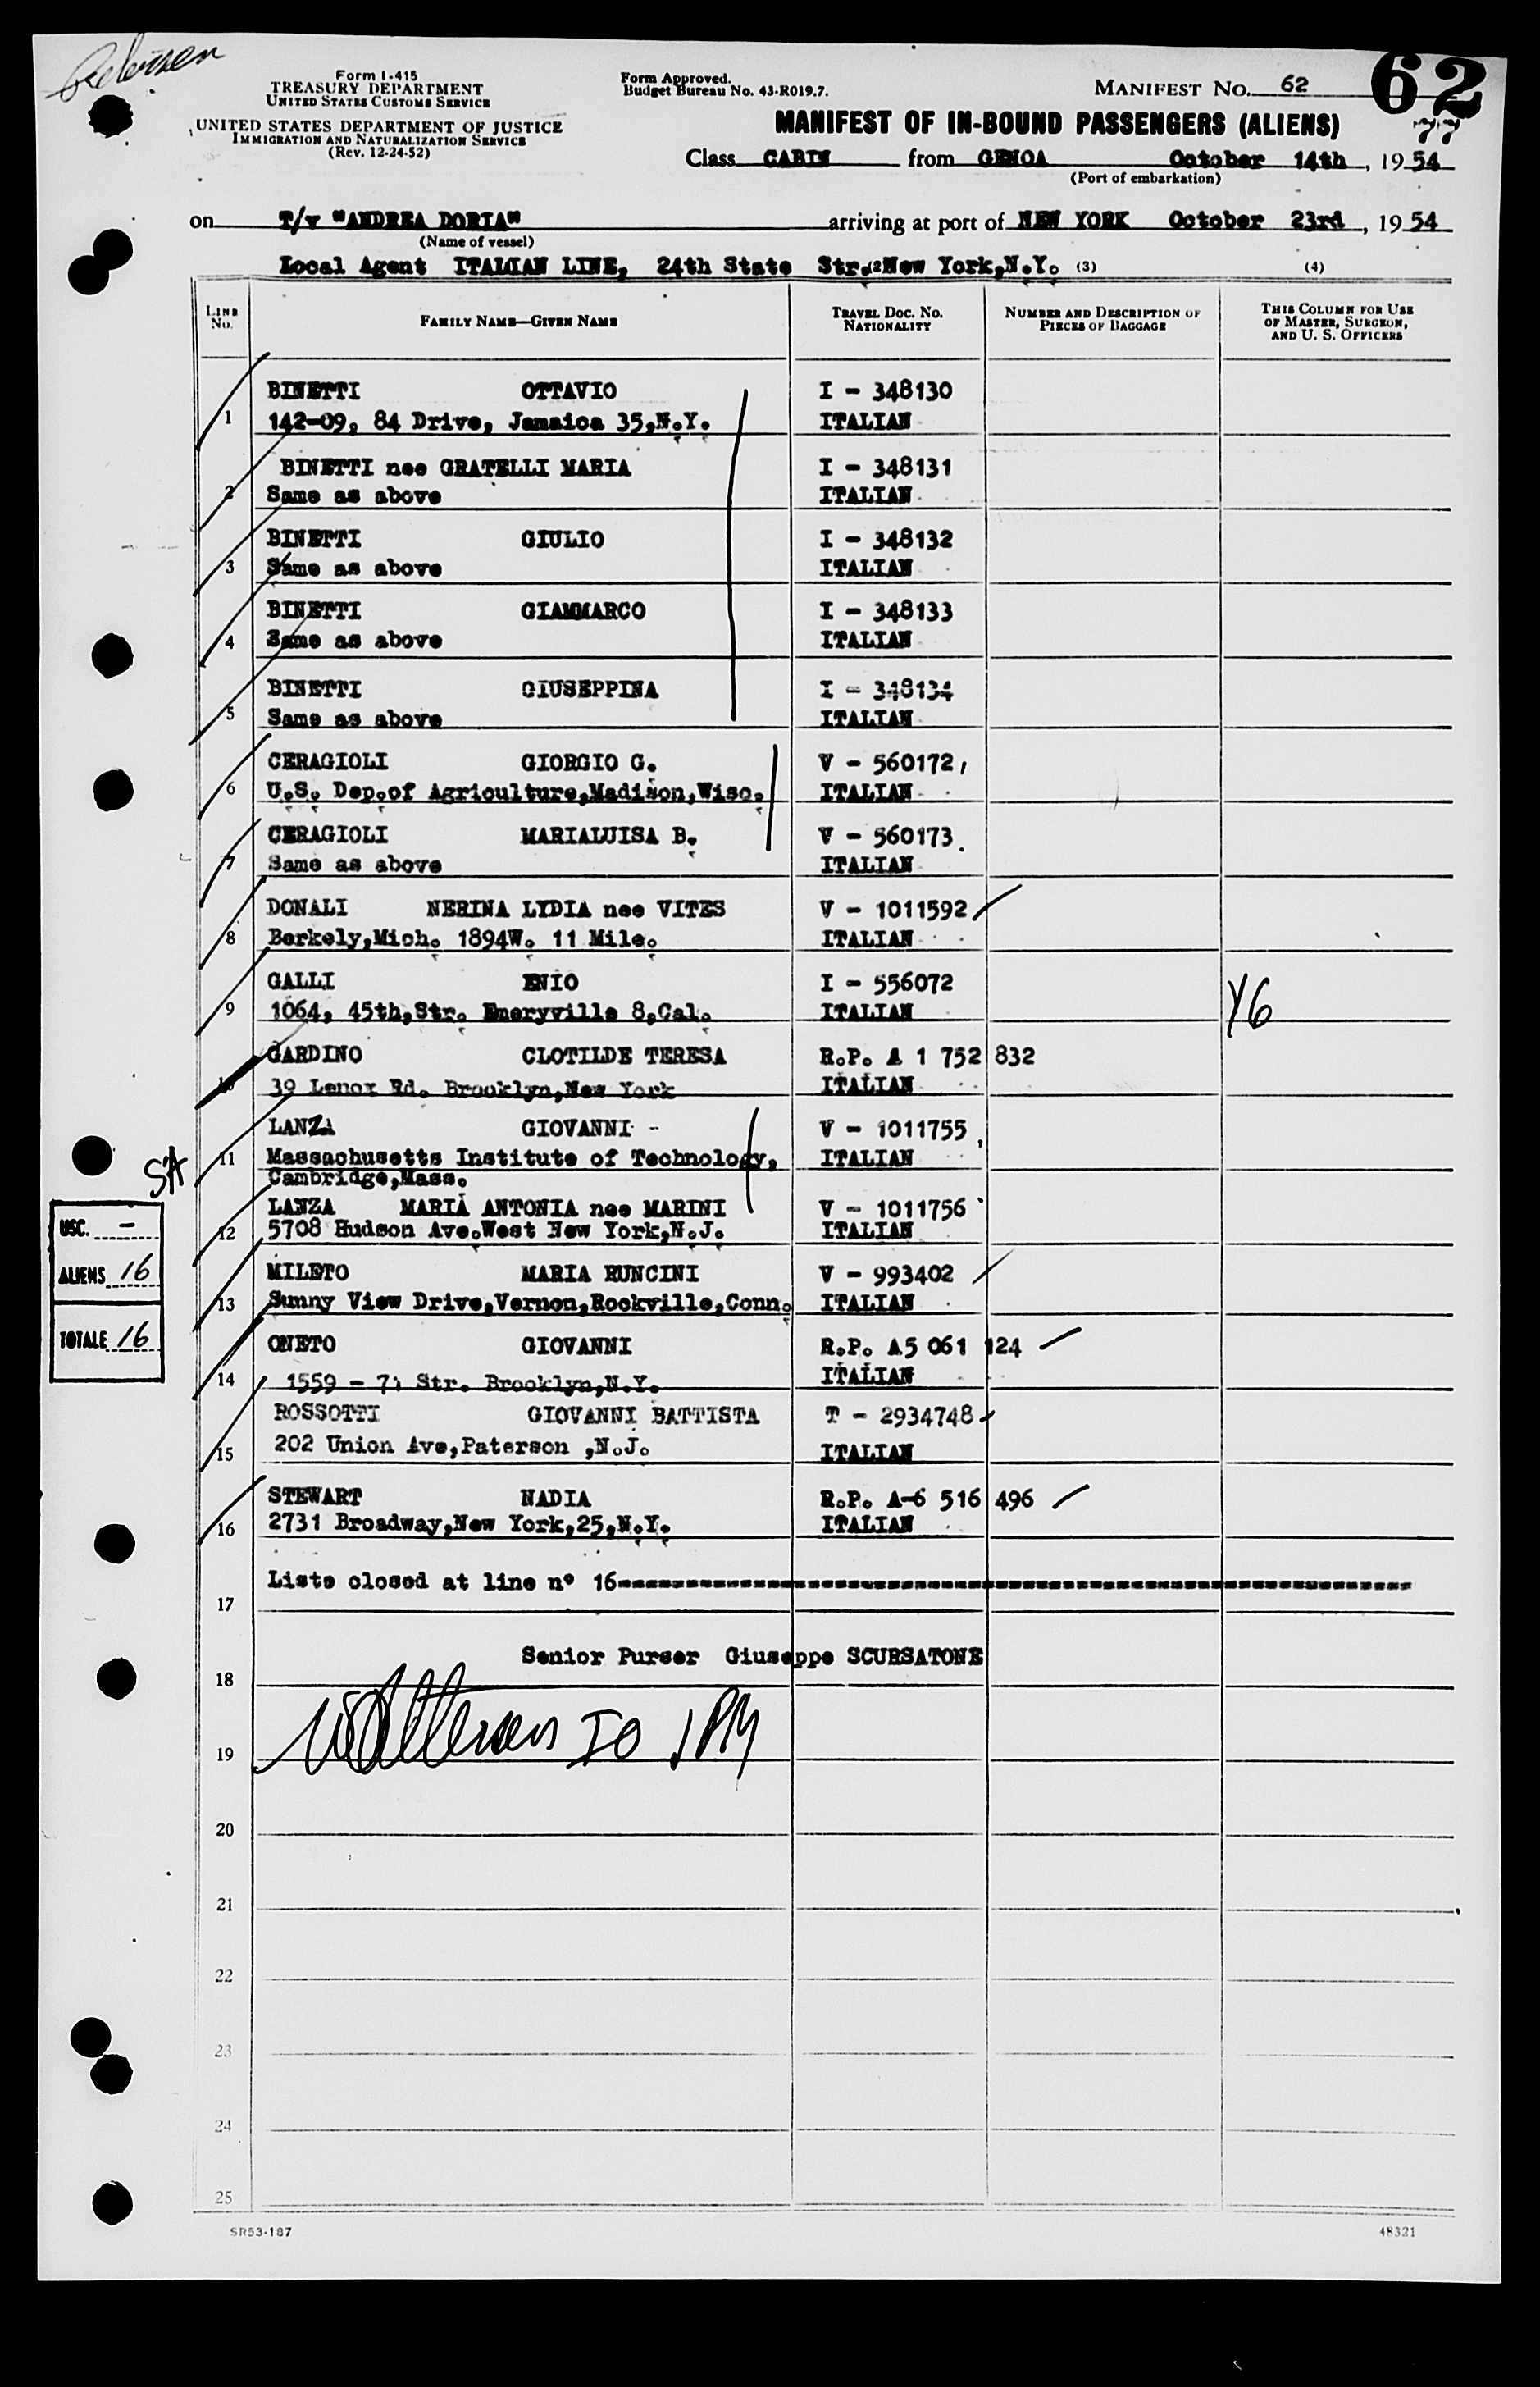 Form I-415
TREASURY DEPARTMENT
UNITED STATES CUSTOMS SERVICE
UNITED STATES DEPARTMENT OF JUSTICE
IMMIGRATION AND NATURALIZATION SERVICE
(Rev. 12-24-52)
Form Approved.
Budget Bureau No. 43-R019.7.
MANIFEST NO. 62
62
77
MANIFEST OF IN-BOUND PASSENGERS (ALIENS)
Class CABIN from GENOA October 14th, 1954
(Port of embarkation)
on T/v "ANDREA DORIA" arriving at port of NEW YORK October 23rd, 1954
(Name of vessel)
Local Agent ITALIAN LINE, 24th State Str. (2) New York,N.Y. (3) (4)
LINE No. FAMILY NAME—GIVEN NAME TRAVEL DOC. NO. NATIONALITY NUMBER AND DESCRIPTION OF PIECES OF BAGGAGE THIS COLUMN FOR USE OF MASTER, SURGEON, AND U. S. OFFICERS
BINETTI OTTAVIO I - 348130
1 142-09, 84 Drive, Jamaica 35,N.Y. ITALIAN
BINETTI nee GRATELLI MARIA I - 348131
2 Same as above ITALIAN
BINETTI GIULIO I - 348132
3 Same as above ITALIAN
BINETTI GIAMMARCO I - 348133
4 Same as above ITALIAN
BINETTI GIUSEPPINA I - 348134
5 Same as above ITALIAN
CERAGIOLI GIORGIO G. V - 560172
6 U.S. Dep.of Agriculture,Madison,Wisc. ITALIAN
CERAGIOLI MARIALUISA B. V - 560173
7 Same as above ITALIAN
DONALI NERINA LYDIA nee VITES V - 1011592
8 Berkely,Mich. 1894W. 11 Mile. ITALIAN
GALLI ENIO I - 556072
9 1064, 45th,Str. Emeryville 8,Cal. ITALIAN
GARDINO CLOTILDE TERESA R.P. A 1 752 832
10 39 Lenox Rd. Brooklyn,New York ITALIAN
LANZA GIOVANNI - V - 1011755
11 Massachusetts Institute of Technology, ITALIAN
Cambridge,Mass.
LANZA MARIA ANTONIA nee MARINI V - 1011756
12 5708 Hudson Ave.West New York,N.J. ITALIAN
MILETO MARIA RUNCINI V - 993402
13 Sunny View Drive,Vernon,Rockville,Conn. ITALIAN
ONETO GIOVANNI R.P. A5 061 124
14 1559 - Str. Brooklyn,N.Y. ITALIAN
ROSSOTTI GIOVANNI BATTISTA T - 2934748
15 202 Union Ave,Paterson ,N.J. ITALIAN
STEWART NADIA R.P. A-6 516 496
16 2731 Broadway,New York,25,N.Y. ITALIAN
SA
USC. -
ALIENS 16
TOTALE 16
Liste closed at line n° 16
17
Senior Purser Giuseppe SCURSATONE
18
19
20
21
22
23
24
25
SR53-187
48321